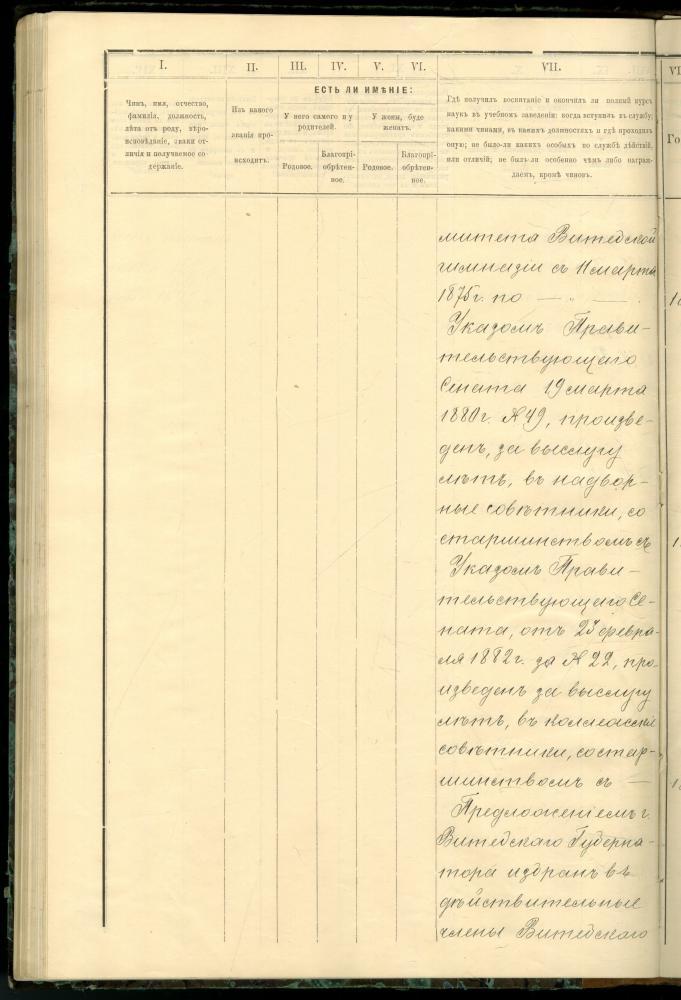 I.
II.
III.
IV.
V.
VI.
VII.
VI
ЕСТЬ ЛИ ИМѢНІЕ:
Чинъ, имя, отчество,
фамилія, должность,
лѣта отъ роду, вѣро-
исповѣданіе, знаки от-
личія и получаемое со-
держаніе.
Изъ какого
званія про-
исходитъ.
У него самого и у
родителей.
У жены, буде
женатъ.
Родовое.
Благопрі-
обрѣтен-
ное.
Родовое.
Благопрі-
обрѣтен-
ное.
Гдѣ получилъ воспитаніе и окончилъ ли полный курсъ
наукъ въ учебномъ заведеніи; когда вступилъ въ службу;
какими чинами, въ какихъ должностяхъ и гдѣ проходилъ
оную; не было-ли какихъ особыхъ по службѣ дѣйствій
или отличій; не былъ-ли особенно чѣмъ либо награж-
даемъ, кромѣ чиновъ.
Го
митета Витебской
гимназіи съ 11 марта
1875 г. по — „ —
Указомъ Прави-
тельствующаго
Сената 19 марта
1880 г. № 49, произве-
денъ, за выслугу
лѣтъ, въ надвор-
ные совѣтники, со
старшинствомъ съ
Указомъ Прави-
тельствующаго Се-
ната, отъ 23 февра-
ля 1882 г. за № 22, про-
изведенъ за выслугу
лѣтъ, въ коллежскіе
совѣтники, со стар-
шинствомъ съ —
Предложеніемъ г.
Витебскаго Губерна-
тора избранъ въ
дѣйствительные
члены Витебскаго